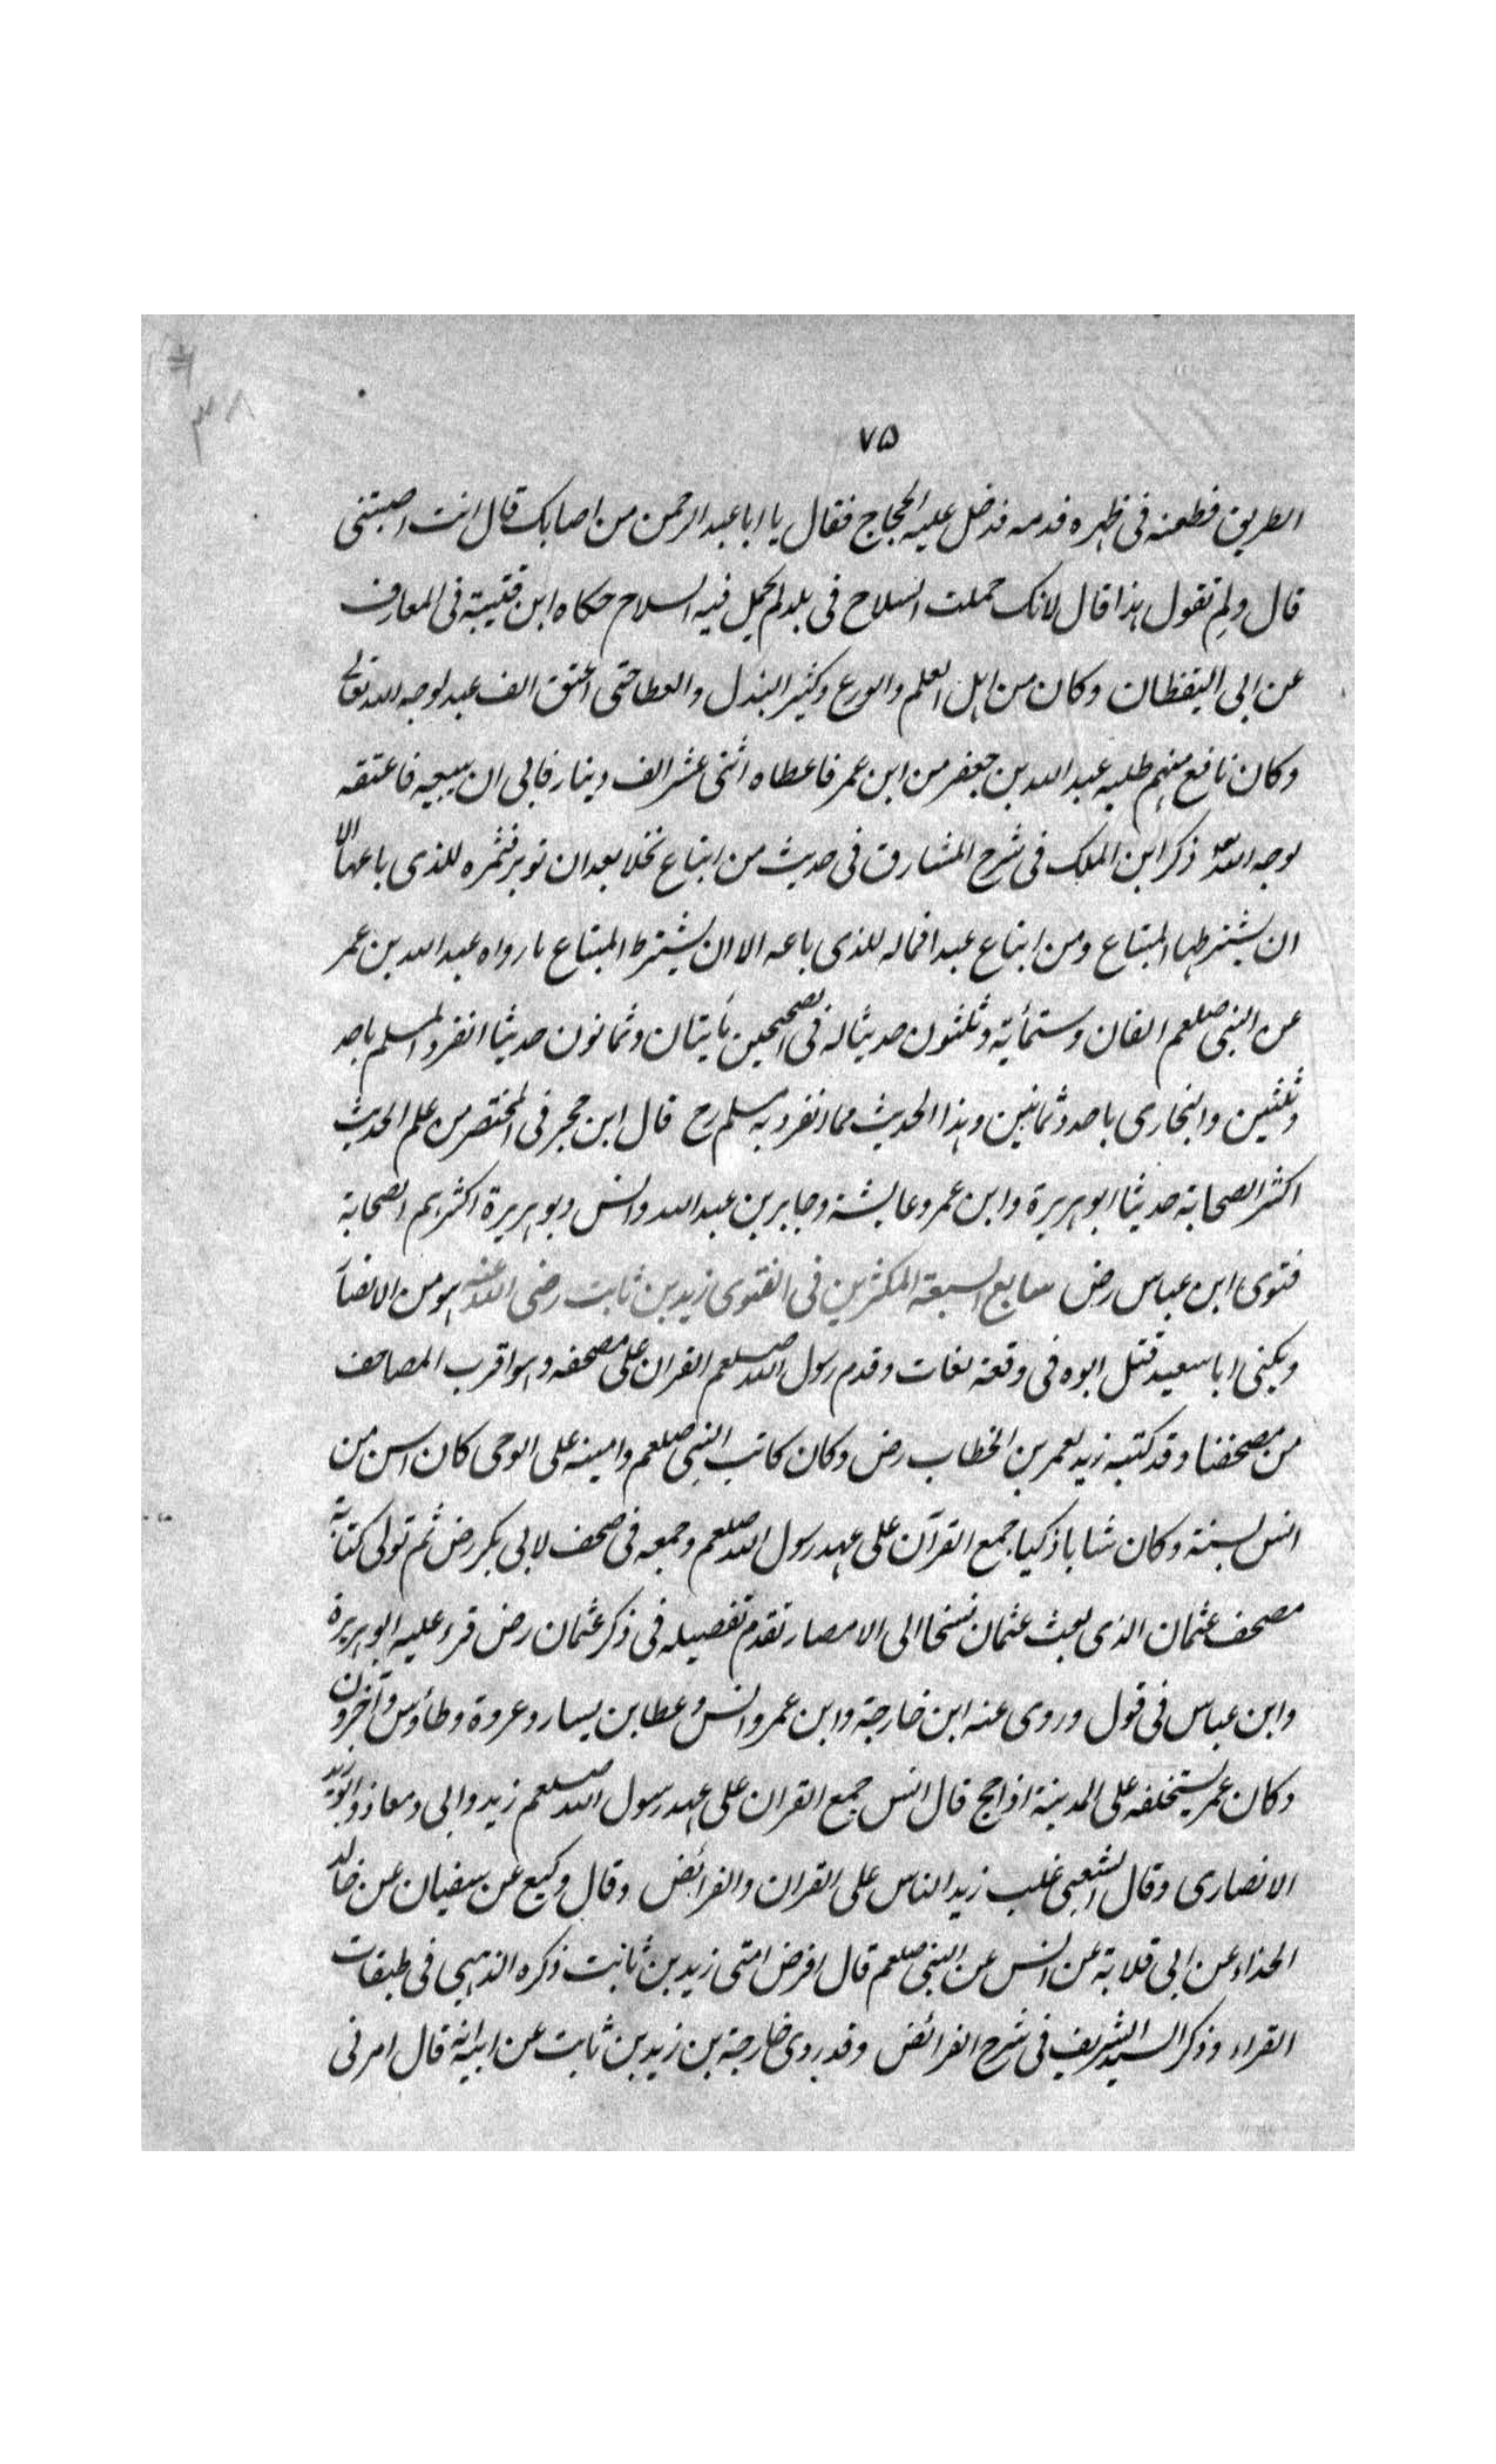 ٧۵
الطريق فطعنه فى ظهره قدمه فدخل عليه الحجاج فقال يا ابا عبد الرحمن من اصابك قال انت اصبتنى
قال ولم تقول هذا قال لانك حملت السلاح فى بلد لم يحمل فيه السلاح حكاه ابن قتيبة فى المعارف
عن ابى اليقظان وكان من اهل العلم والورع وكثير البذل والعطا حتى اعتق الف عبد لوجه الله تعالى
وكان نافع منهم طلبه عبد الله بن جعفر من ابن عمر فاعطاه اثنى عشر الف دينار فابى ان يبيعه فاعتقه
لوجه الله ذكر ابن الملك فى شرح المشارق فى حديث من ابتاع نخلا بعد ان توبر فثمره للذى باعها الا
ان يشترطها المبتاع ومن ابتاع عبدا فماله للذى باعه الا ان يشترط المبتاع ما رواه عبد الله بن عمر
عن النبى صلعم الفان وستمأية وثلثون حديثا له فى الصحيحين مأيتان وثمانون حديثا انفرد المسلم باحد
وثلثين والبخارى باحد وثمانين وهذا الحديث مما انفرد به مسلم رح قال ابن حجر فى المختصر من علم الحديث
اكثر الصحابة حديثا ابو هريرة وابن عمر وعايشة وجابر بن عبد الله وانس وبو هريرة اكثرهم الصحابة
فتوى ابن عباس رض سابع السبعة المكثرين فى الفتوى زيد بن ثابت رضى الله عنه هو من الانصا
ويكنى ابا سعيد قتل ابوه فى وقعة بغاث وقدم رسول الله صلعم القران على مصحفه وهو اقرب المصاحف
من مصحفنا وقد كتبه زيد لعمر بن الخطاب رض وكان كاتب النبى صلعم وامينه على الوحى كان اسن من
انس بسنة وكان شابا ذكيا جمع القرآن على عهد رسول الله صلعم وجمعه فى صحف لابى بكر رض ثم تولى كتابة
مصحف عثمان الذى بعث عثمان نسخا الى الامصار تقدم تفصيله فى ذكر عثمان رض قرء عليه ابو هريرة
وابن عباس فى قول وروى عنه ابن خارجة وابن عمر وانس وعطا بن يسار وعروة وطاؤس وآخرون
وكان عمر يستخلفه على المدينة اذا حج قال انس جمع القران على عهد رسول الله صلعم زيد وابى ومعاذ وابو زيد
الانصارى وقال الشعبى غلب زيد الناس على القران والفرائض وقال وكيع عن سفيان عن خالد
الحذاء عن ابى قلابة عن انس عن النبى صلعم قال افرض امتى زيد بن ثابت ذكره الذهبى فى طبقات
القراء وذكر السيد الشريف فى شرح الفرائض وقد روى خارجة بن زيد بن ثابت عن ابيه انه قال امرنى